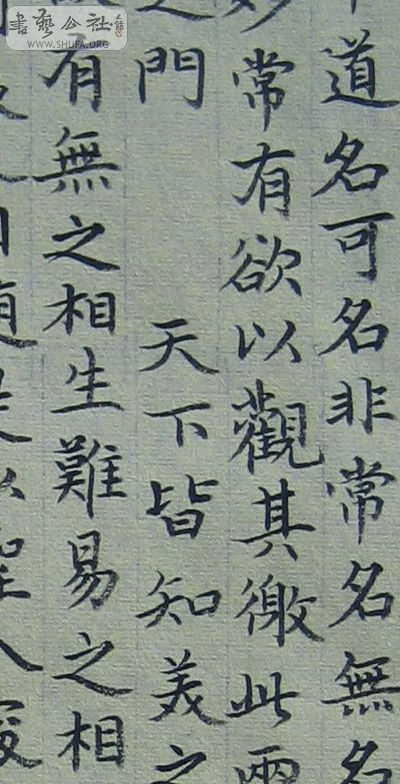 道名可名非常名無名
妙常有欲以觀其徼此兩
之門 天下皆知美之
有無之相生難易之相
隨是以聖人
書藝公社
WWW.SHUFA.ORG